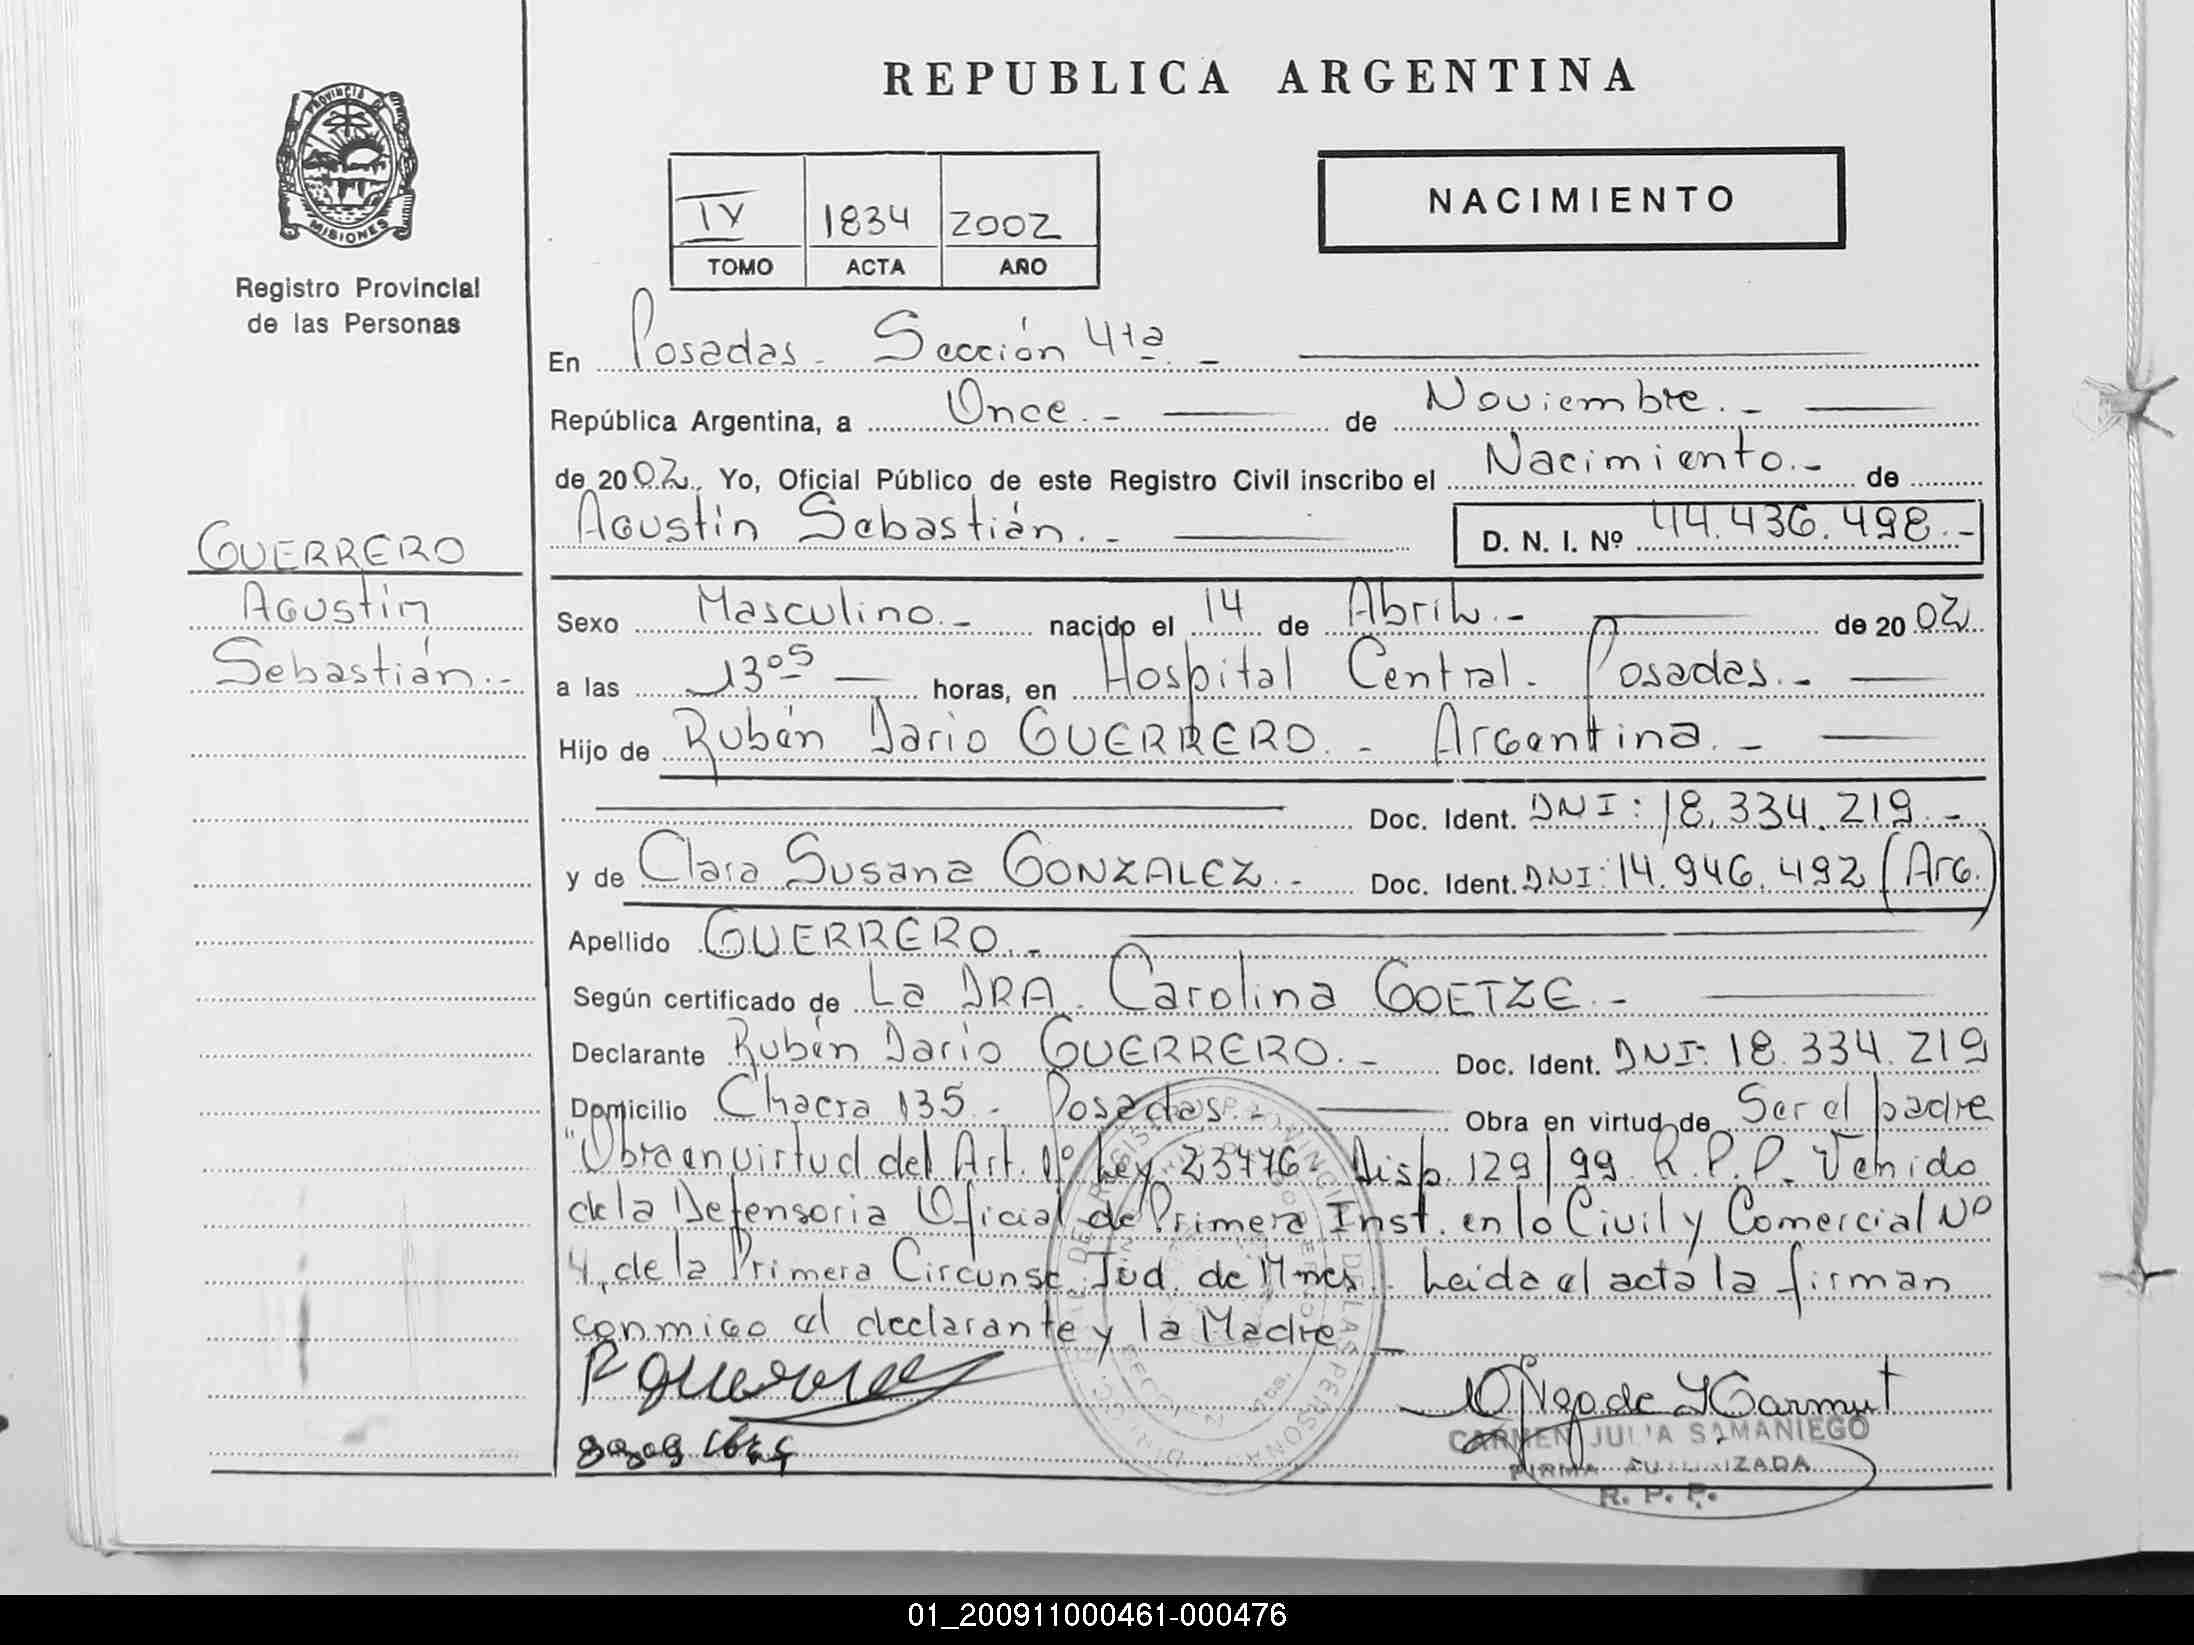 REPUBLICA ARGENTINA
PROVINCIA DE
MISIONES
Registro Provincial
de las Personas
NACIMIENTO
IV 1834 2002
TOMO ACTA AÑO
En Posadas - Sección 4ta. -
República Argentina, a Once. - de Noviembre. -
de 2002. Yo, Oficial Público de este Registro Civil inscribo el Nacimiento. - de
Agustín Sebastián. - D. N. I. Nº 44.436.498. -
GUERRERO
Agustín
Sebastián. -
Sexo Masculino. - nacido el 14 de Abril. - de 2002
a las 13 05 horas, en Hospital Central - Posadas. -
Hijo de Rubén Dario GUERRERO. - Argentina. -
Doc. Ident. DNI: 18.334.219. -
y de Clara Susana GONZALEZ. - Doc. Ident. DNI: 14.946.492 (Arg.)
Apellido GUERRERO. -
Según certificado de La DRA. Carolina GOETZE. -
Declarante Rubén Dario GUERRERO. - Doc. Ident. DNI: 18.334.219
Domicilio Chacra 135 - Posadas. - Obra en virtud de Ser el padre
"Obra en virtud del Art. 1º Ley 23776 - Disp. 129/99 R.P.P. Venido
de la Defensoria Oficial de Primera Inst. en lo Civil y Comercial Nº
4, de la Primera Circunsc. Jud. de Mnes. Leida el acta la firman
conmigo el declarante y la Madre
CARMEN JULIA SAMANIEGO
FIRMA AUTORIZADA
R. P. P.
01_200911000461-000476